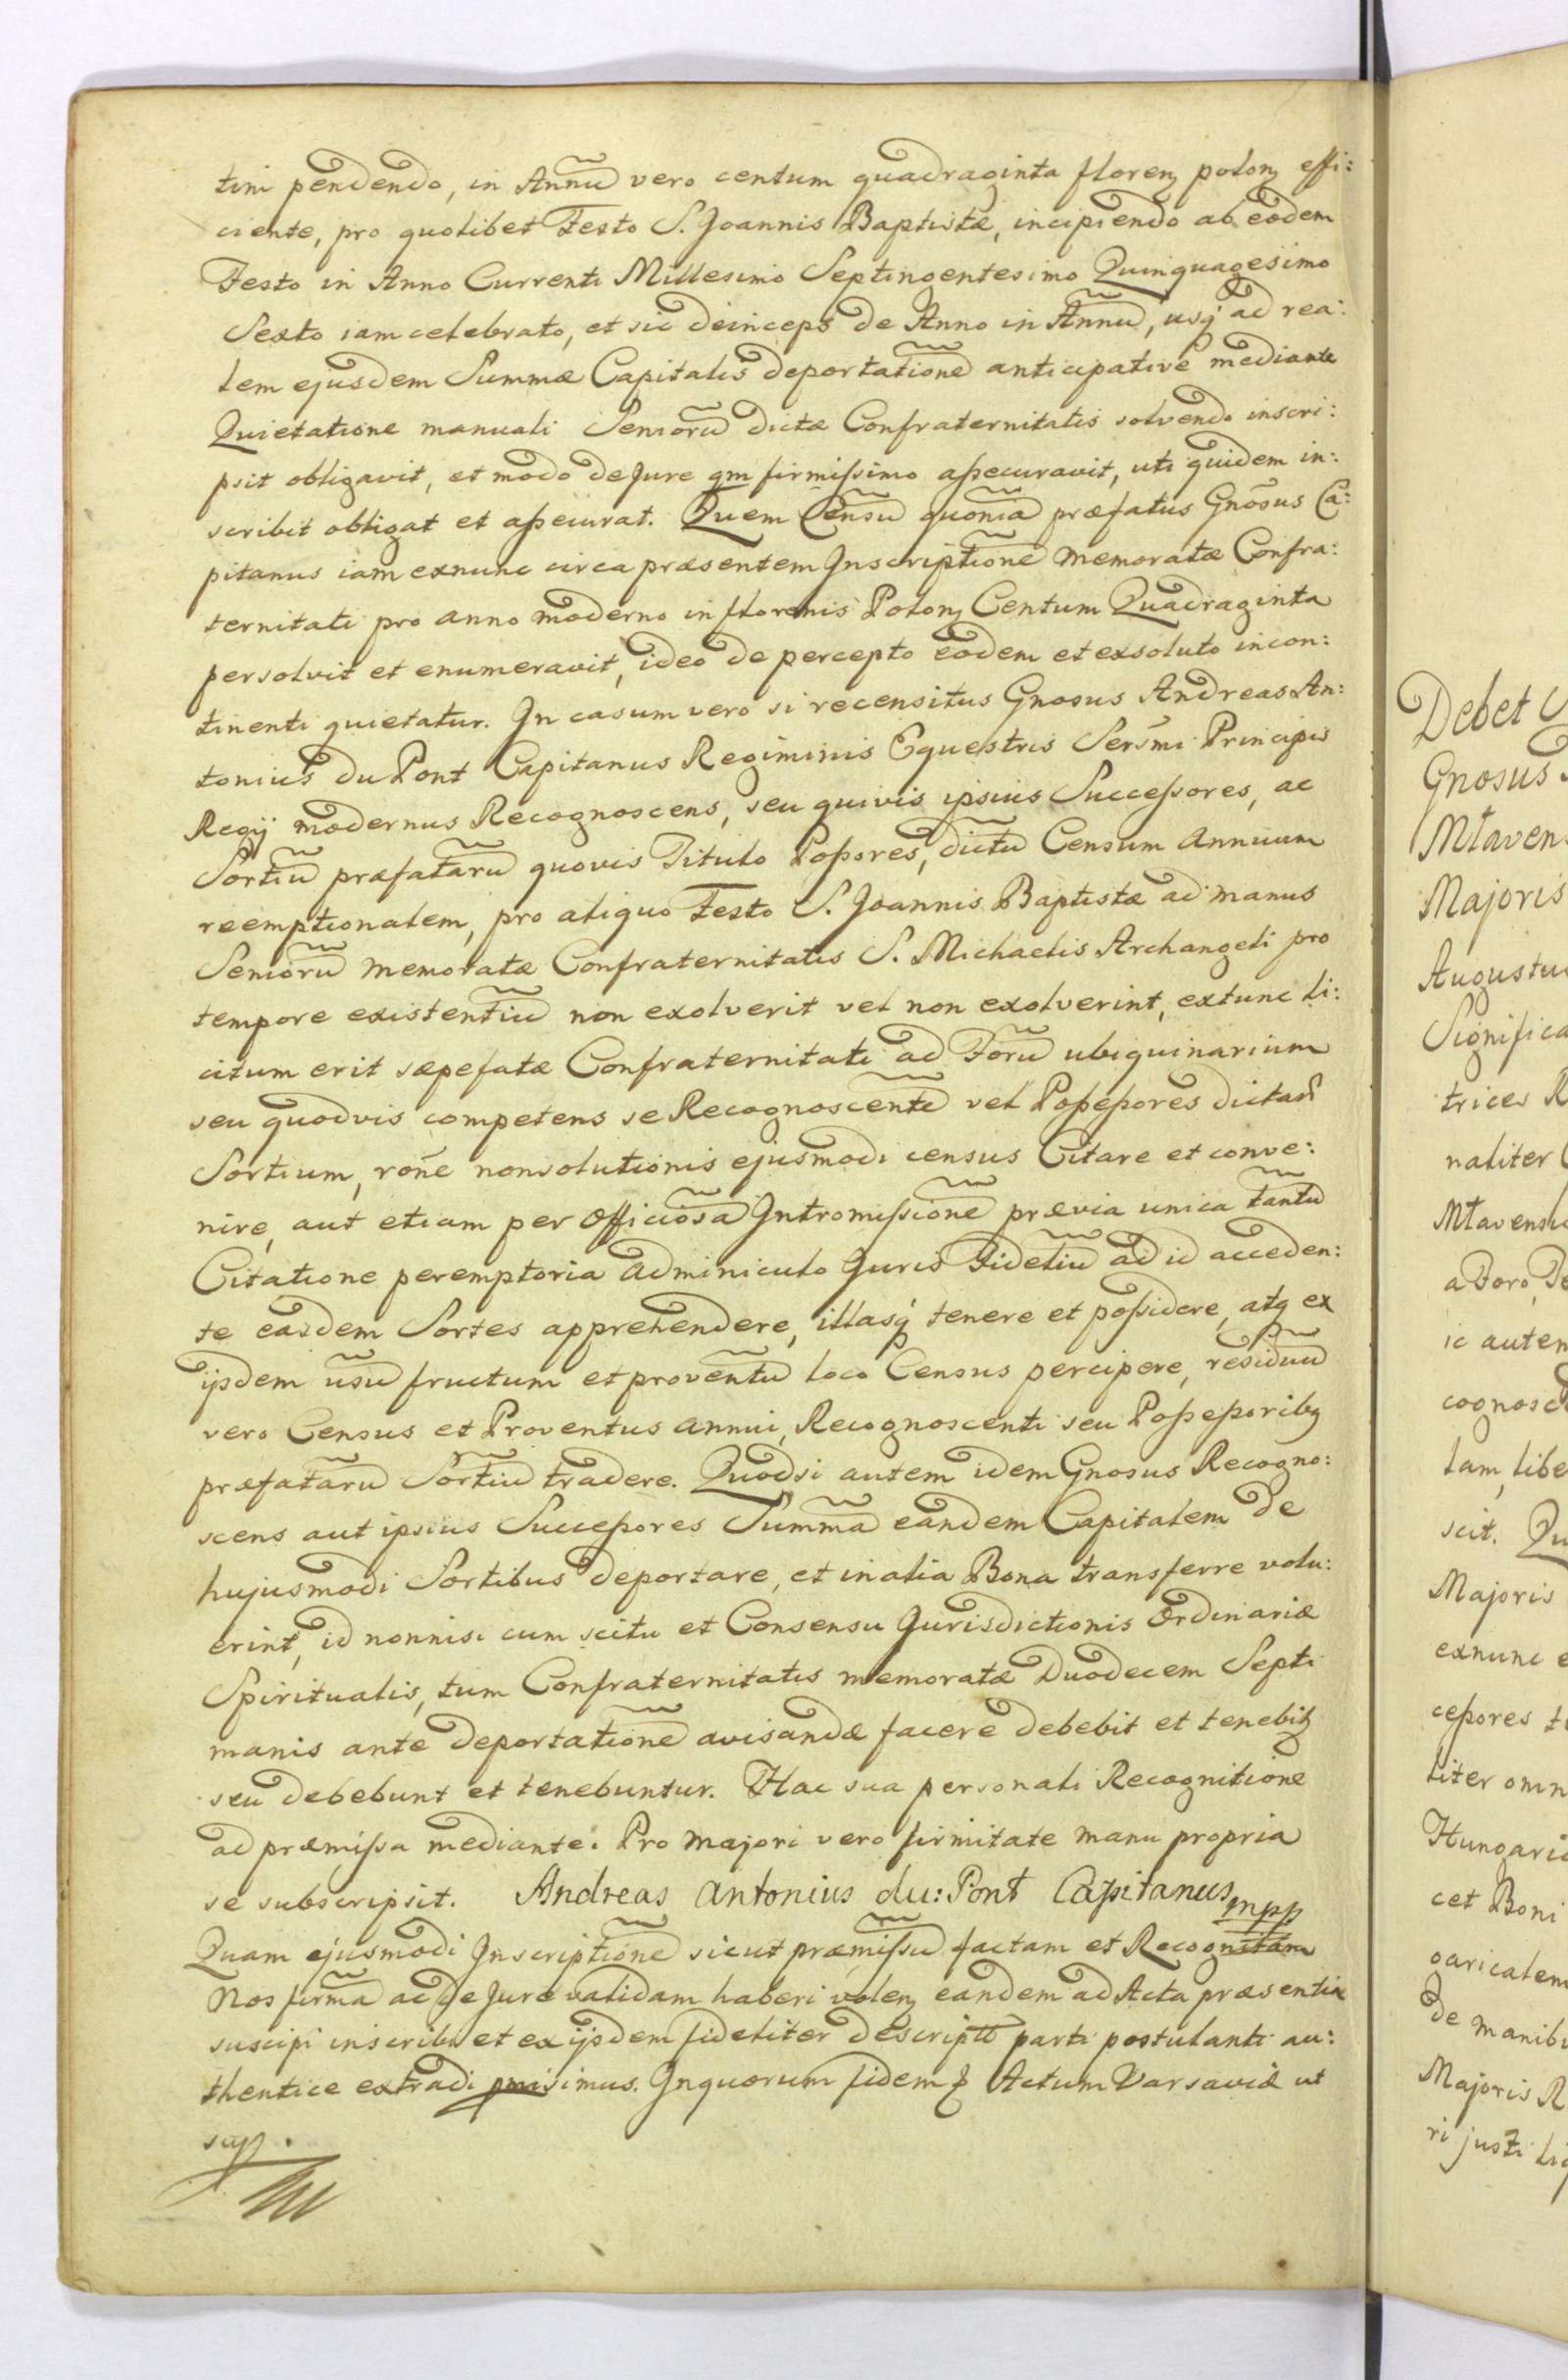 tini pendendo, in Annũ vero centum quadraginta floren polon effi:
ciente, pro quolibet Festo S. Joannis Baptistæ, incipiendo ab eodem
Festo in Anno Currenti Millesimo Septingentesimo Quinquagesimo
Sexto iam celebrato, et sic deinceps de Anno in Annũ, usq́ ad rea:
lem ejusdem Summæ Capitalis deportationẽ anticipative mediante
Quietatione manuali Seniorũ dictæ Confraternitatis solvendo inscri:
psit obligavit, et modo de Jure qm firmissimo assecuravit, uti quidem in:
scribit obligat et assecurat. Quem Censũ quoniã præfatus Gnõsus Ca:
pitanus iam exnunc circa præsentem Inscriptionẽ memoratæ Confra:
ternitati pro anno moderno in florenis Polon Centum Quadraginta
persolvit et enumeravit, ideo de percepto eodem et exsoluto incon:
tinenti quietatur. In casum vero si recensitus Gnosus Andreas An:
tonius du Pont Capitanus Regiminis Equestris Serm̃i Principis
Regij modernus Recognoscens, seu quivis ipsius Successores, ac
Sortiũ præfatarũ quovis Titulo Possores, dictũ Censum annuum
reemptionalem, pro aliquo Festo S. Joannis Baptistæ ad manus
Seniorũ memoratæ Confraternitatis S. Michaelis Archangeli pro
tempore existentiũ non exolverit vel non exolverint, extunc li:
citum erit sæpefatæ Confraternitati ad Forũ ubiquinarium
seu quodvis competens se Recognoscentẽ vel Possessores dictar
Sortium, roñe nonsolutionis ejusmodi census Citare et conve:
nire, aut etiam per officiosã Intromissionẽ prævia unica tantũ
Citatione peremptoria adminiculo Juris Fideliũ ad id acceden:
te easdem Sortes apprehendere, illasq́ tenere et possidere, atq ex
ijsdem usũ fructum et proventũ loco Census percipere, residuũ
vero Census et Proventus annui, Recognoscenti seu Possessoribq
præfatarũ Sortiũ tradere. Quodsi autem idem Gnosus Recogno:
scens aut ipsius Successores Summã eandem Capitalem de
hujusmodi Sortibus deportare, et in alia Bona transferre volu:
erint, id nonnisi cum scitu et Consensu Jurisdictionis Ordinariæ
Spiritualis, tum Confraternitatis memoratæ Duodecem Septi
manis ante deportationẽ avisandæ facere debebit et tenebit
seu debebunt et tenebuntur. Hac sua personali Recognitione
ad præmissa mediante. Pro majori vero firmitate manu propria
se subscripsit. Andreas Antonius du: Pont Capitanus mpp
Quam ejusmodi Inscriptionẽ sicut præmissũ factam et Recognitam
Nos firmã ac de Jure validam haberi volen eandem ad Acta præsentia
suscipi inscribi et ex ijsdem fideliter descriptt parti postulanti au:
thentice extradi pmisimus. In quorum fidem & Actum Varsaviæ ut
sup.

Debet
Gnosus
Mlaven
Majoris
Augustus
Significa
trices R
naliter
Mlavensi
a Foro, De
ic autem
cognosce
lam, libe
scit. Qu
Majoris
exnunc e
cessores t
liter omn
Hungari
cet Boni
garicalem
de manib
Majoris R
ri justi li